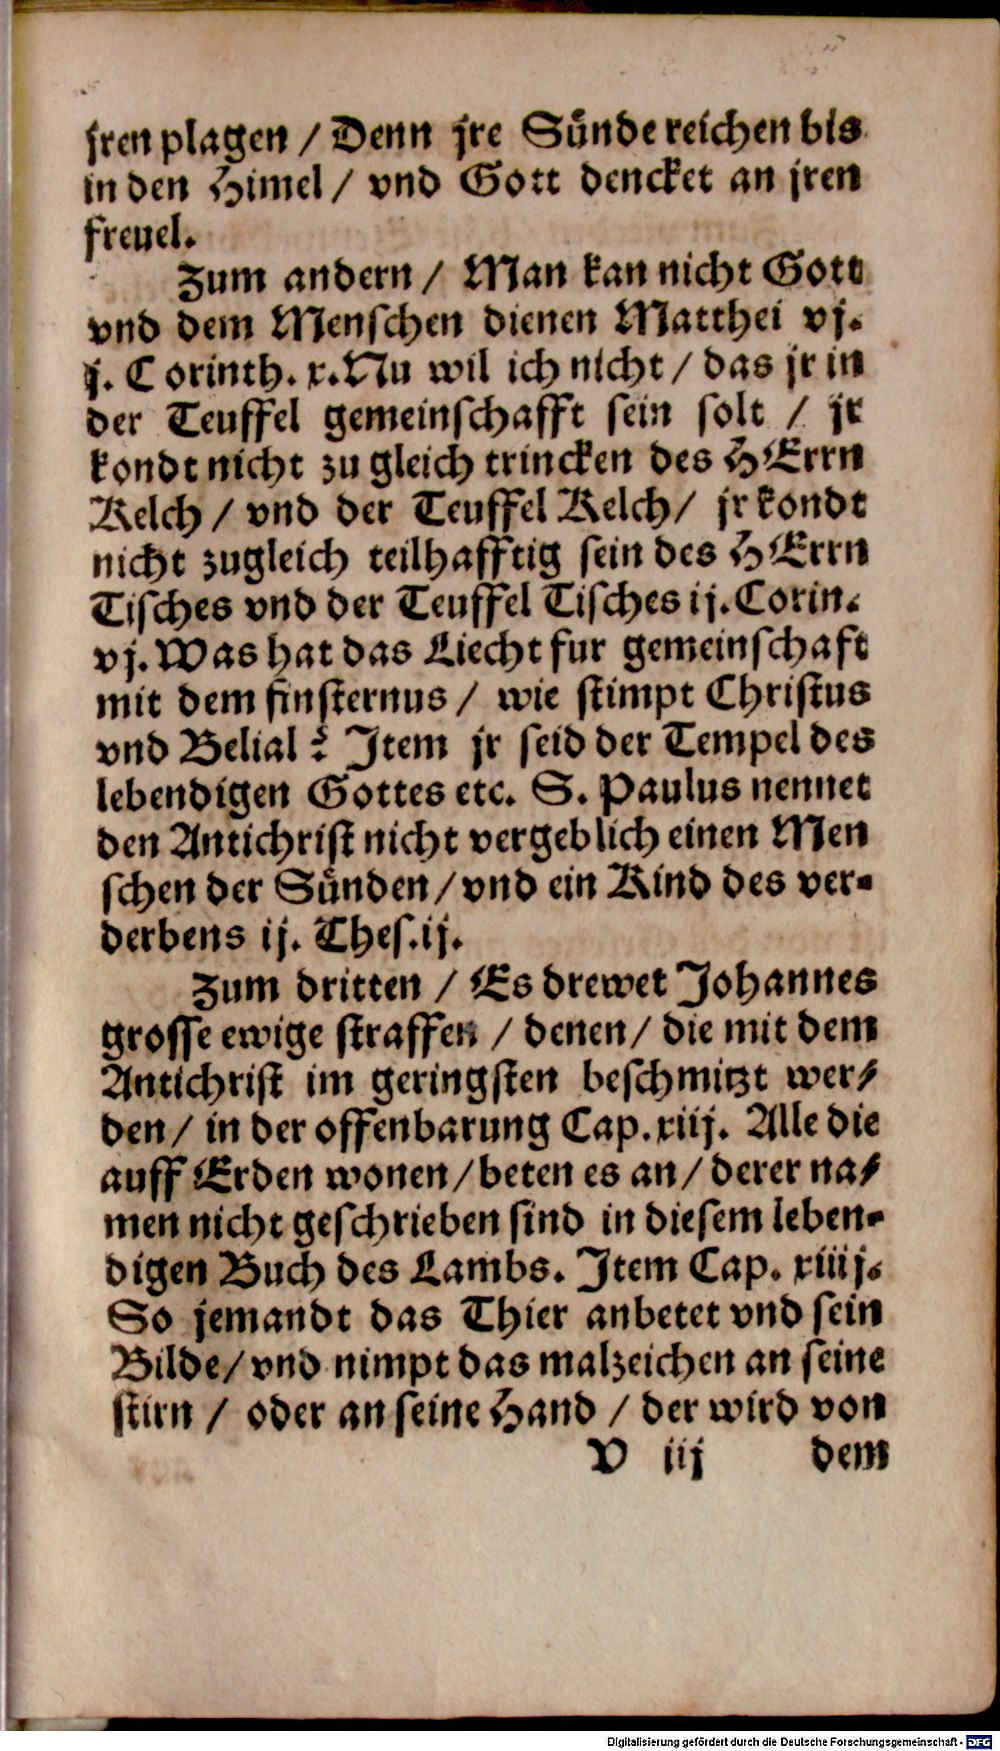 jren plagen / Denn jre Sünde reichen bis
in den Himel / vnd Gott dencket an jren
freuel.
Zum andern / Man kan nicht Gott
vnd dem Menschen dienen Matthei vj.
j. Corinth. x. Nu wil ich nicht / das jr in
der Teuffel gemeinschafft sein solt / jr
kondt nicht zu gleich trincken des HErrn
Kelch / vnd der Teuffel Kelch / jr kondt
nicht zugleich teilhafftig sein des HErrn
Tisches vnd der Teuffel Tisches ij. Corin.
vj. Was hat das Liecht fur gemeinschaft
mit dem finsternus / wie stimpt Christus
vnd Belial ? Item jr seid der Tempel des
lebendigen Gottes etc. S. Paulus nennet
den Antichrist nicht vergeblich einen Men
schen der Sünden / vnd ein Kind des ver-
derbens ij. Thes. ij.
Zum dritten / Es drewet Johannes
grosse ewige straffen / denen / die mit dem
Antichrist im geringsten beschmitzt wer/
den / in der offenbarung Cap. xiij. Alle die
auff Erden wonen / beten es an / derer na/
men nicht geschrieben sind in diesem leben-
digen Buch des Lambs. Item Cap. xiiij.
So jemandt das Thier anbetet vnd sein
Bilde / vnd nimpt das malzeichen an seine
stirn / oder an seine Hand / der wird von
V iij dem
Digitalisierung gefördert durch die Deutsche Forschungsgemeinschaft - DFG